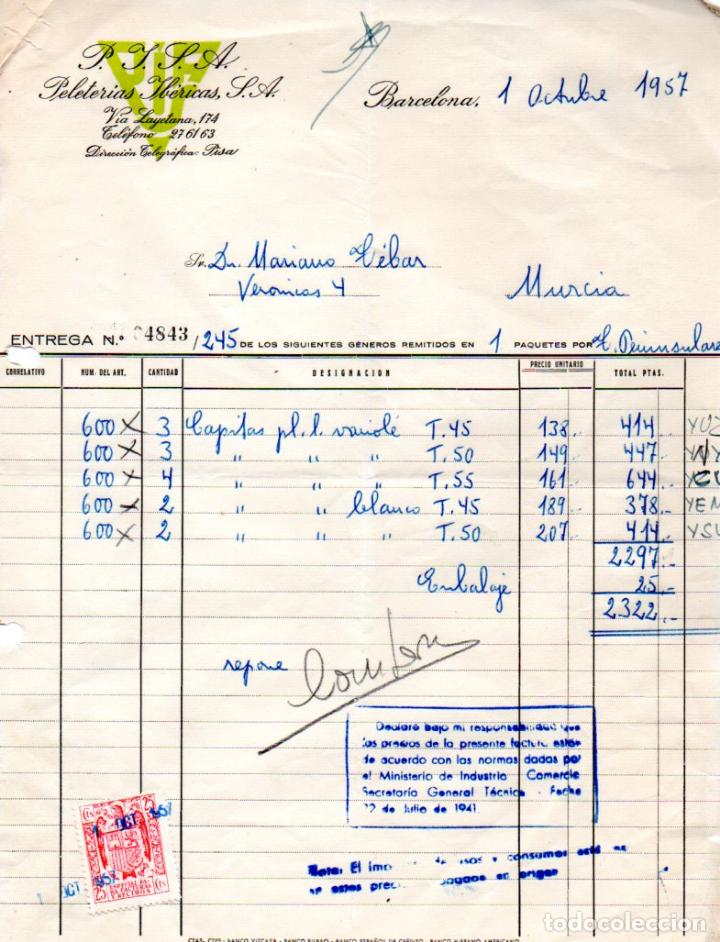 P.I.S.A.
Peleterias Ibéricas, S.A.
Via Layetana, 174
Teléfono 276163
Dirección Telegráfica: Pisa
Barcelona, 1 Octubre 1957
Sr. Dn. Mariano Tébar
Veronicas 4 Murcia
ENTREGA N.º 4843/245 DE LOS SIGUIENTES GÉNEROS REMITIDOS EN 1 PAQUETES POR Peninsulares
CORRELATIVO NUM. DEL ART. CANTIDAD DESIGNACION PRECIO UNITARIO TOTAL PTAS.
600 x 3 Capitas pl. l. T.45 138.- 414.-
600 x 3 " " " T.50 149.- 447.-
600 x 4 " " " T.55 161.- 644.-
600 x 2 " " blanco T.45 189.- 378.- YEM
600 x 2 " " " T.50 207.- 414.-
2297.-
Embalaje 25.-
2322.-
repone
Declaro bajo mi responsabilidad que
los precios de la presente factura están
de acuerdo con las normas dadas por
el Ministerio de Industria Comercio
Secretaría General Técnica - Fecha
12 de Julio de 1941.
Nota: El y consumos está
en estos en origen
25 Cts
1 OCT 1957
ESPECIAL PARA
FACTURAS Y RECIBOS
25 Cts
CTAS. CTES - BANCO VIZCAYA - BANCO BILBAO - BANCO ESPAÑOL DE CRÉDITO - BANCO HISPANO AMERICANO
todocoleccion